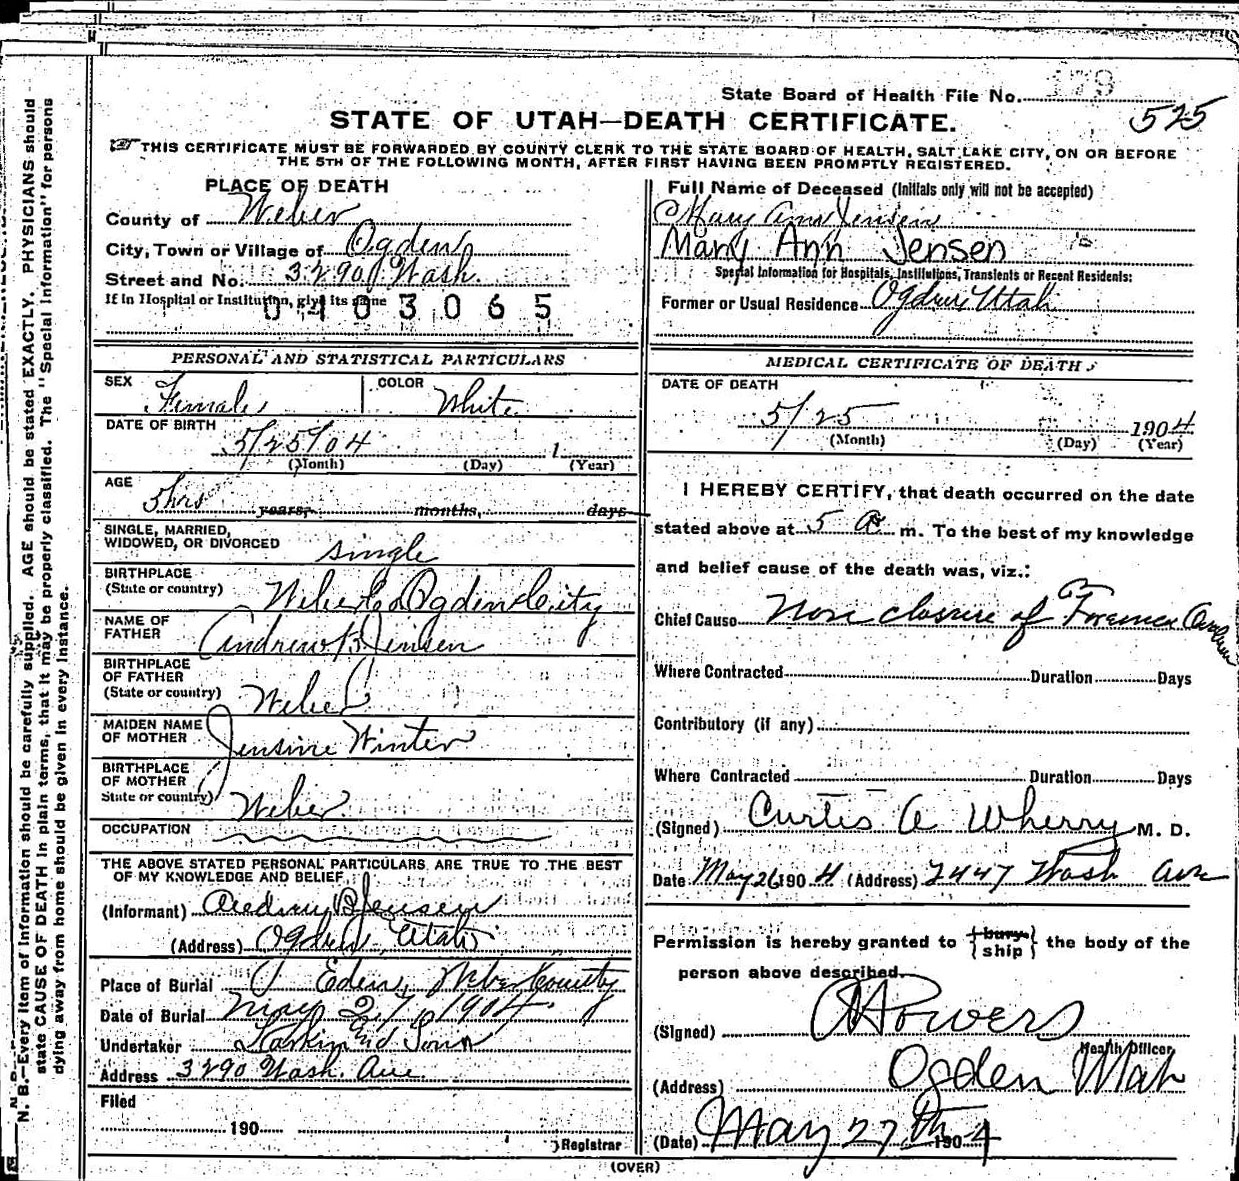 State Board of Health File No. 179
525
STATE OF UTAH—DEATH CERTIFICATE.
THIS CERTIFICATE MUST BE FORWARDED BY COUNTY CLERK TO THE STATE BOARD OF HEALTH, SALT LAKE CITY, ON OR BEFORE
THE 5TH OF THE FOLLOWING MONTH, AFTER FIRST HAVING BEEN PROMPTLY REGISTERED.
PLACE OF DEATH
County of Weber
City, Town or Village of Ogden
Street and No. 3290 Wash.
If in Hospital or Institution, give its name
0403065
PERSONAL AND STATISTICAL PARTICULARS
SEX Female COLOR White
DATE OF BIRTH
5/25/04 1
(Month) (Day) (Year)
AGE
5 hrs years, months, days
SINGLE, MARRIED,
WIDOWED, OR DIVORCED single
BIRTHPLACE
(State or country) Weber Co Ogden City
NAME OF
FATHER Andrew B Jensen
BIRTHPLACE
OF FATHER
(State or country) Weber
MAIDEN NAME
OF MOTHER Jensine Winter
BIRTHPLACE
OF MOTHER
State or country) Weber
OCCUPATION
THE ABOVE STATED PERSONAL PARTICULARS ARE TRUE TO THE BEST
OF MY KNOWLEDGE AND BELIEF
(Informant) Andrew B Jensen
(Address) Ogden Utah
Place of Burial Eden, Weber County
Date of Burial May 27 1904
Undertaker Larkin and Sons
Address 3290 Wash. Ave
Filed
190
Registrar
Full Name of Deceased (Initials only will not be accepted)
Mary Ann Jensen
Mary Ann Jensen
Special Information for Hospitals, Institutions, Transients or Recent Residents:
Former or Usual Residence Ogden Utah
MEDICAL CERTIFICATE OF DEATH
DATE OF DEATH
5/25 1904
(Month) (Day) (Year)
I HEREBY CERTIFY, that death occurred on the date
stated above at 5 a m. To the best of my knowledge
and belief cause of the death was, viz.:
Chief Cause Non closure of Foramen Ovalum
Where Contracted Duration Days
Contributory (if any)
Where Contracted Duration Days
(Signed) Curtis A Wherry M. D.
Date May 26 1904 (Address) 2447 Wash Ave
Permission is hereby granted to {bury ship} the body of the
person above described.
(Signed) Powers
Health Officer
(Address) Ogden Utah
(Date) May 27th 1904
(OVER)
N. B.—Every item of information should be carefully supplied. AGE should be stated EXACTLY. PHYSICIANS should
state CAUSE OF DEATH in plain terms, that it may be properly classified. The "Special Information" for persons
dying away from home should be given in every instance.